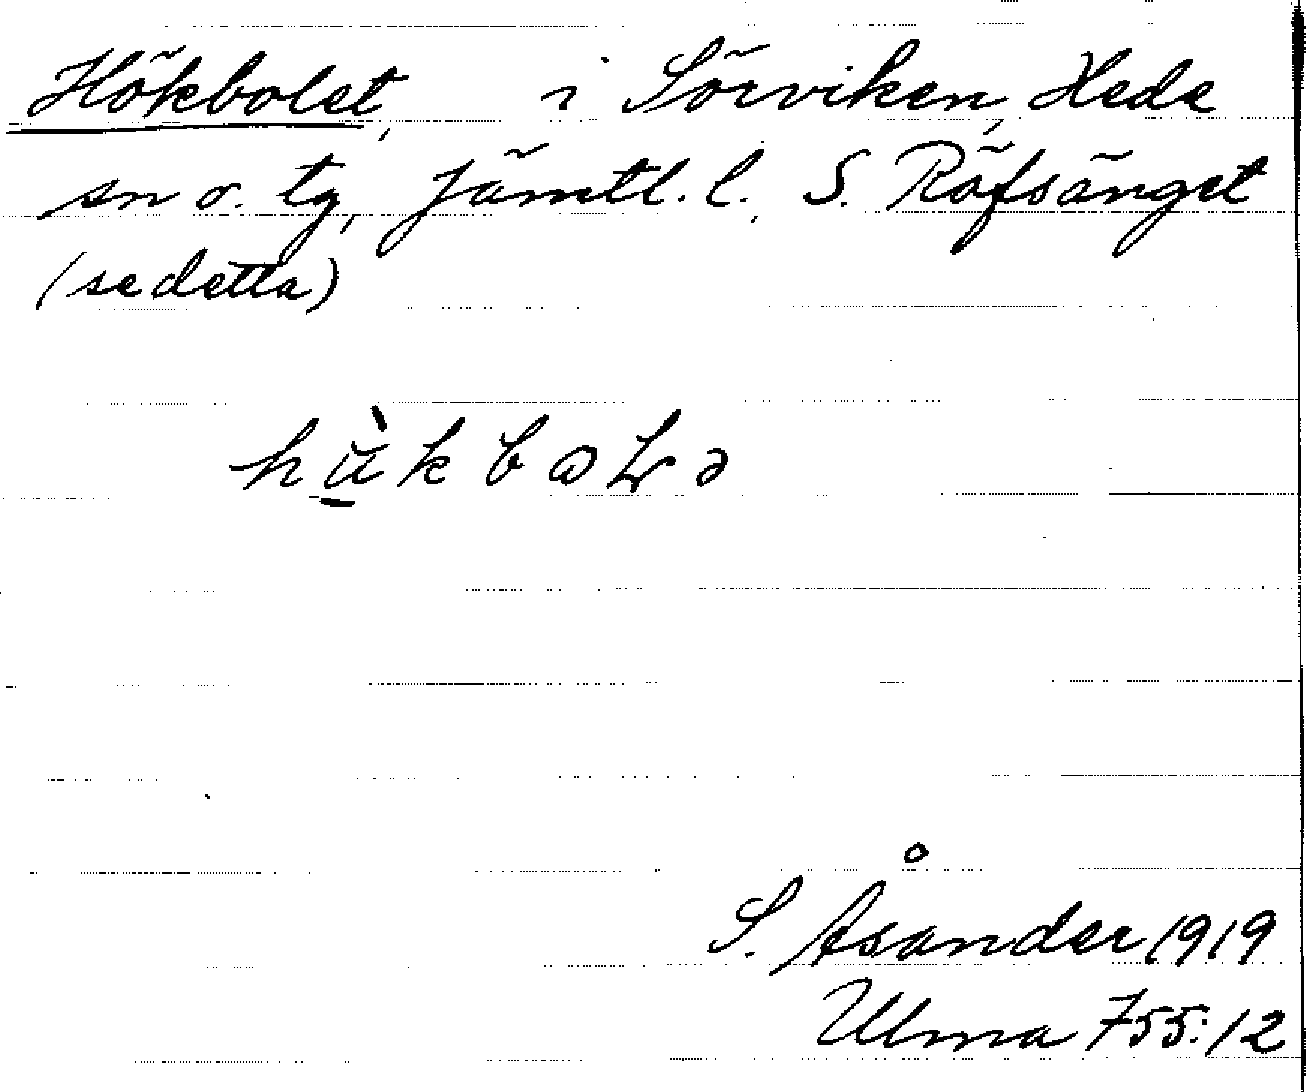 Hökbolet, i Sörviken, Hede
sn o. tg, Jämtl. l. S. Räfsänget
(se detta)
S. Åsander 1919
Ulma 755:12